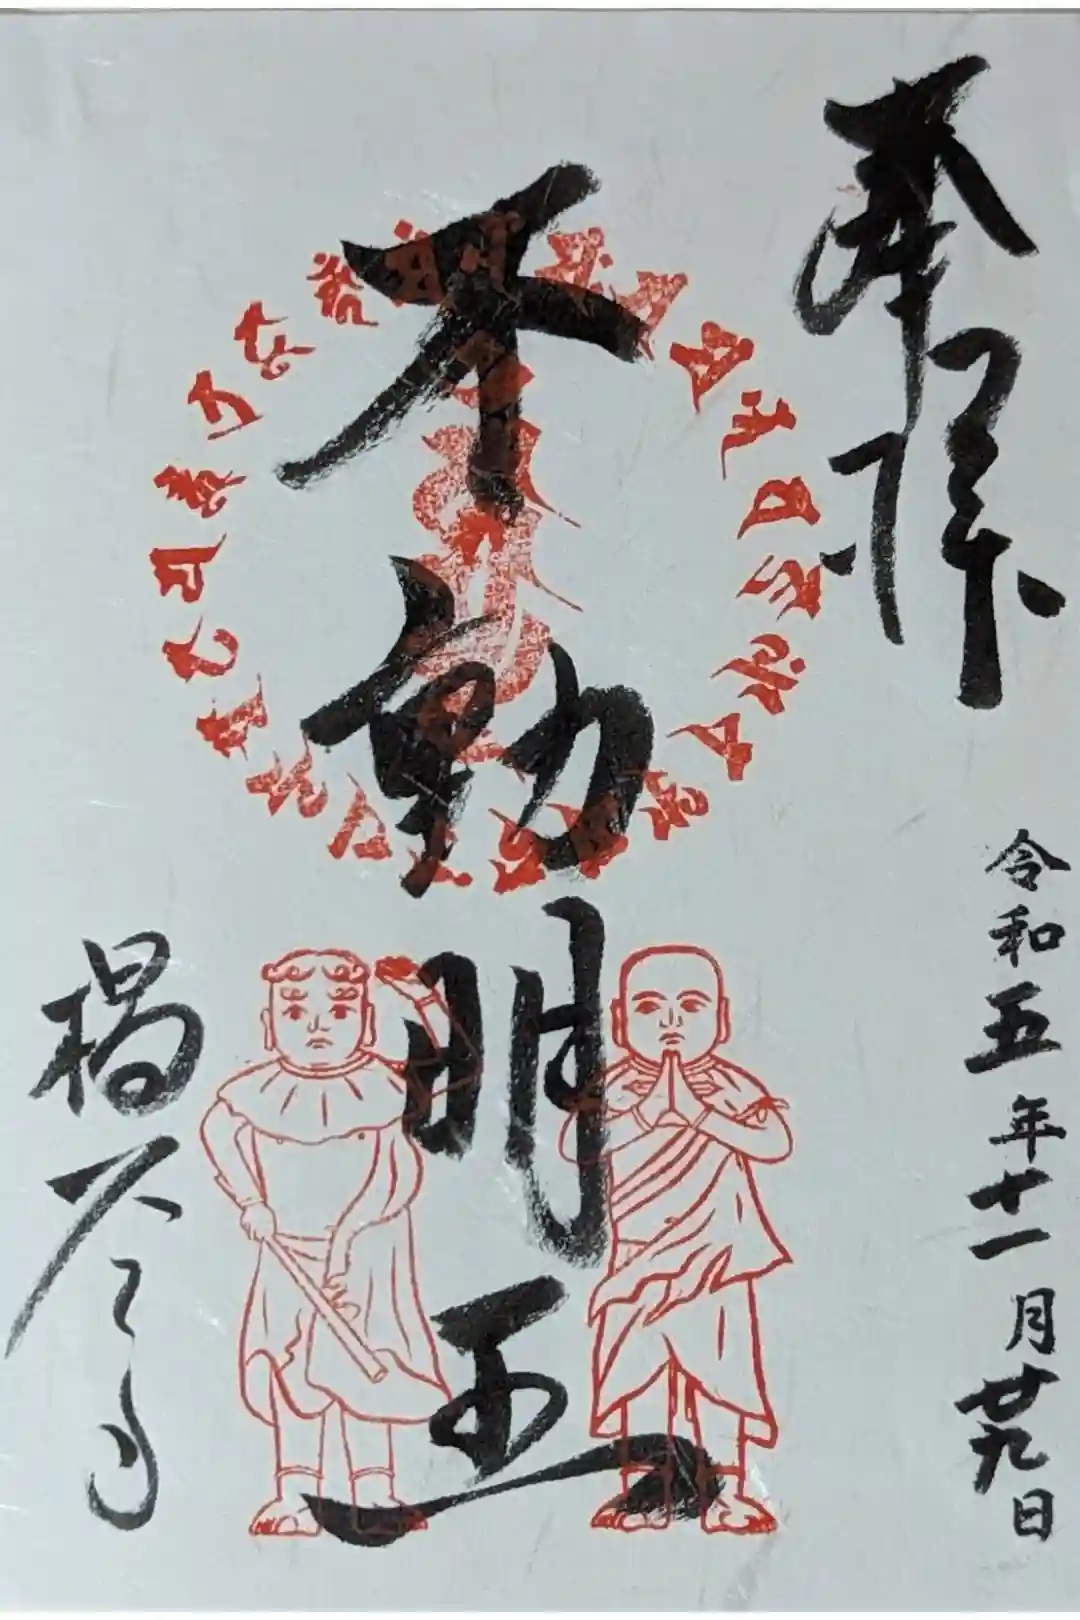 奉拝
令和五年十一月廿九日
不動明王
楊谷寺